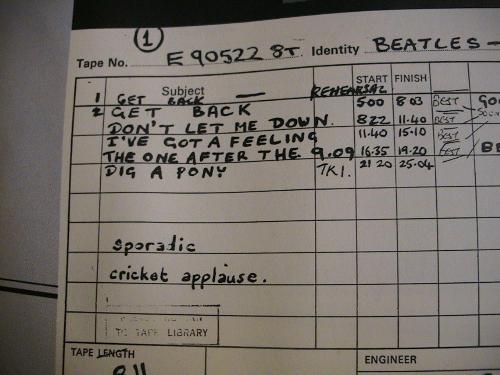 1
Tape No. E90522 8T Identity BEATLES -
Subject START FINISH
1 GET BACK — REHEARSAL 500 8 03 BEST GOO
2 GET BACK 822 11.40 BEST
DON'T LET ME DOWN. 11.40 15.10 BEST
I'VE GOT A FEELING
THE ONE AFTER THE 9.09 16.35 19.20 BEST BE
DIG A PONY TK1. 21 20 25.04
sporadic
cricket applause.
TO TAPE LIBRARY
TAPE LENGTH
ENGINEER